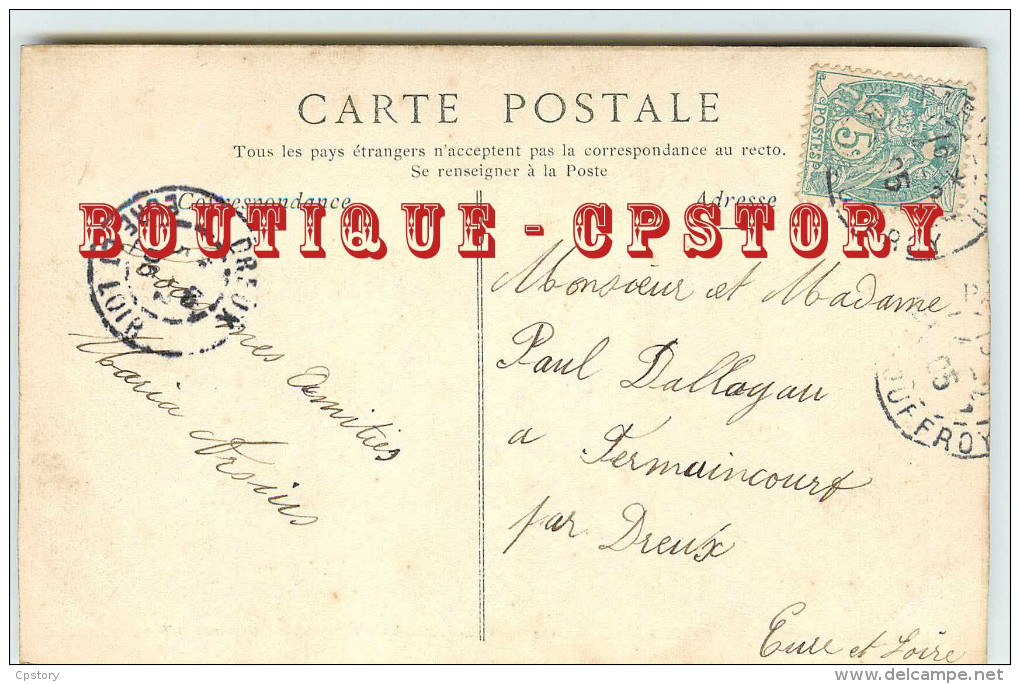 CARTE POSTALE
Tous les pays étrangers n'acceptent pas la correspondance au recto.
Se renseigner à la Poste
Correspondance
Adresse
BOUTIQUE - CPSTORY
POSTES
5c
DREUX
LOIR
mes Amitiés
Maria
Monsieur et Madame
Paul Dalloyau
a Fermaincourt
par Dreux
Eure et Loire
05
JOUFFROY
Cpstory
delcampe.net